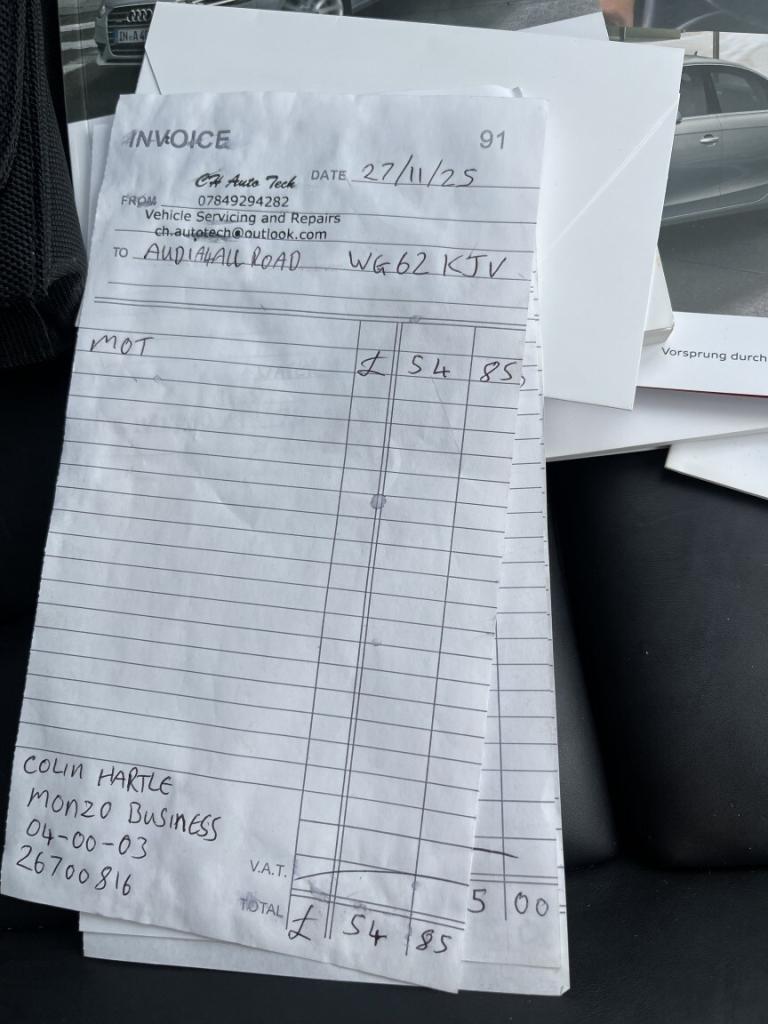 INVOICE 91
CH Auto Tech DATE 27/11/25
FROM 07849294282
Vehicle Servicing and Repairs
ch.autotech@outlook.com
TO AUDI A4 ALL ROAD WG62 KJV
MOT
£ 54 85
Vorsprung durch
COLIN HARTLE
MONZO BUSINESS
04-00-03
26700816
V.A.T.
TOTAL £ 54 85
5 00